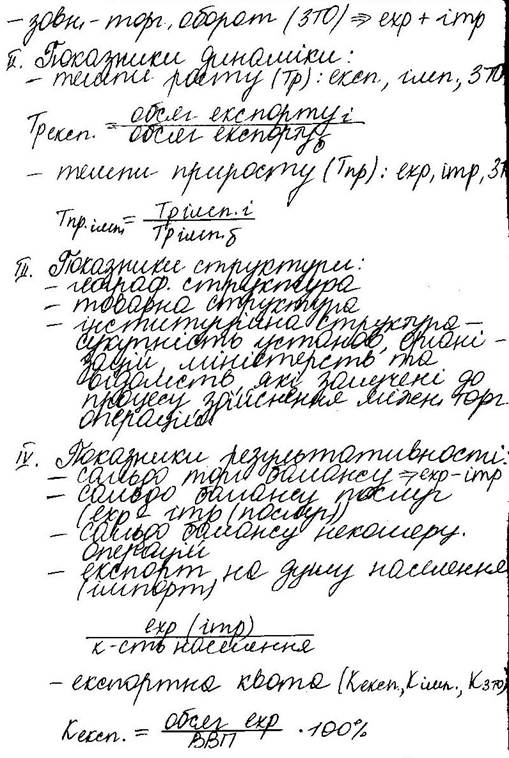 – зовн. торг. оборот (ЗТО) ⇒ exp + imp
II. Показники динаміки:
– темпи росту (Тр): експ, імп, ЗТО
Tр експ. = обсяг експорту i / обсяг експорту б
– темпи приросту (Tпр): exp, imp, ЗТ
Тпр. імп. = Тр імп. i / Тр імп. б
III. Показники структури:
– географ. структура
– товарна структура
– інституційна структура –
сукупність установ, органі-
зацій, міністерств та
відомств, які залучені до
процесу здійснення міжн. торг.
операцій
IV. Показники результативності:
– сальдо торг. балансу ⇒ exp – imp
– сальдо балансу послуг
(exp – imp (послуг))
– сальдо балансу некомерц.
операцій
– експорт на душу населення
(імпорт)
exp (imp) / к-сть населення
– експортна квота (Kексп, Kімп., K ЗТО)
Kексп. = обсяг exp / ВВП · 100%